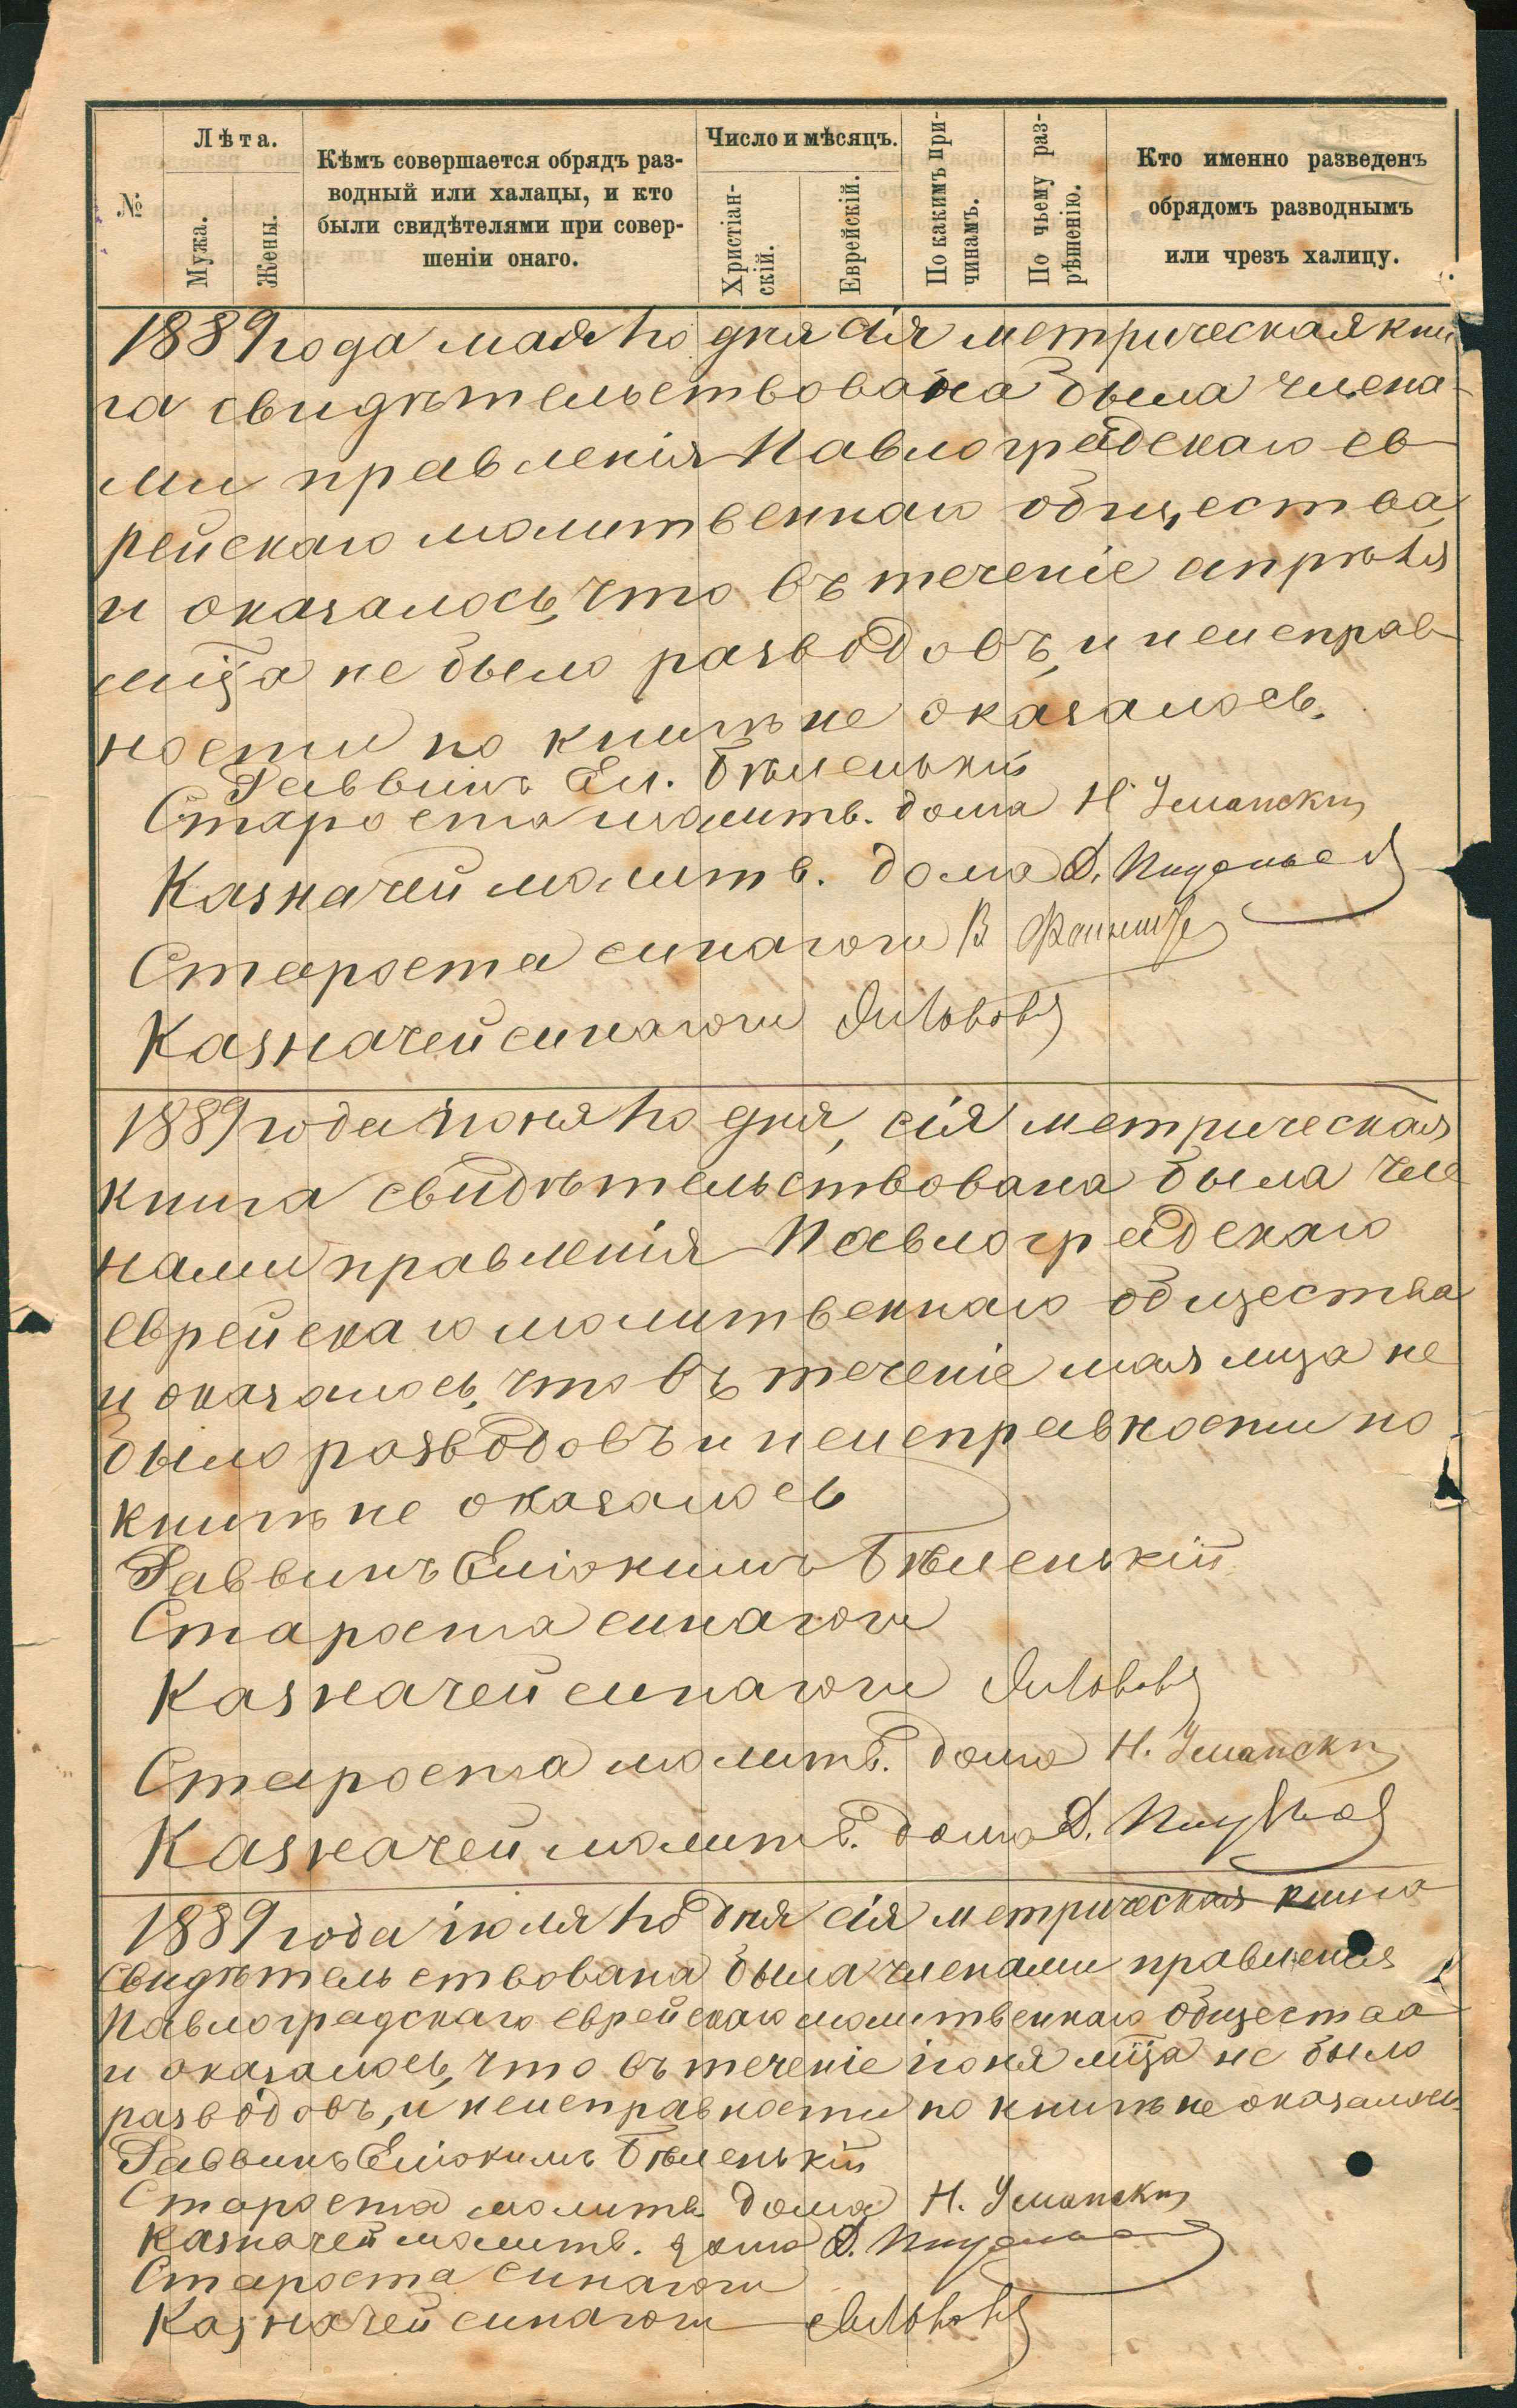 №
Лѣта.
Мужа.
Жены.
Кѣмъ совершается обрядъ раз-
водный или халацы, и кто
были свидѣтелями при совер-
шеніи онаго.
Число и мѣсяцъ.
Христіан-
скій.
Еврейскій.
По какимъ при-
чинамъ.
По чьему раз-
рѣшенію.
Кто именно разведенъ
обрядомъ разводнымъ
или чрезъ халицу.
1889 года мая 1го дня сія метрическая кни
га свидѣтельствована была члена-
ми правленія Павлоградскаго ев-
рейскаго молитвеннаго общества
и оказалось, что въ теченіе апрѣля
мѣца не было разводовъ, и неисправ-
ности по книгѣ не оказалось.
Раввинъ Ел. Бѣленькій
Староста молитв. дома Н. Уманскій
Казначей молитв. дома Д.
Староста синагоги В
Казначей синагоги
1889 года Іюня 1го дня, сія метрическая
книга свидѣтельствована была чле
нами правленія Павлоградскаго
еврейскаго молитвеннаго общества
и оказалось, что въ теченіе мая мца не
было разводовъ и неисправности по
книгѣ не оказалось
Раввинъ Еліокимъ Бѣленькій
Староста синагоги
Казначей синагоги
Староста молитв. дома Н. Уманскій
Казначей молитв. дома Д.
1889 года іюля 1го дня сія метрическая книга
свидѣтельствована была членами правленія
Павлоградскаго еврейскаго молитвеннаго общества
и оказалось, что въ теченіе іюня мѣца не было
разводовъ, и неисправности по книгѣ не оказалось
Раввинъ Еліокимъ Бѣленькій
Староста молитв. дома Н. Уманскій
Казначей молитв. дома Д.
Староста синагоги
Казначей синагоги